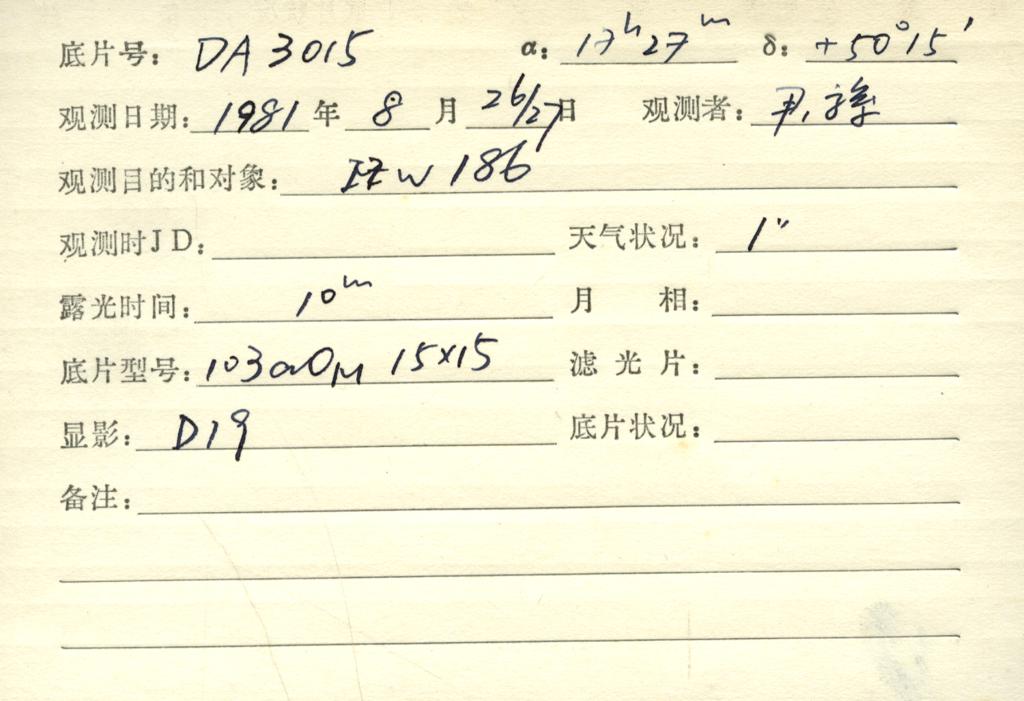 底片号: DA 3015 α: 17h27m δ: +50°15′
观测日期: 1981 年 8 月 26/27 日 观测者: 尹,
观测目的和对象: IZw 186
观测时JD: 天气状况: 1″
露光时间: 10m 月 相:
底片型号: 103aO 15×15 滤光片:
显影: D19 底片状况:
备注: